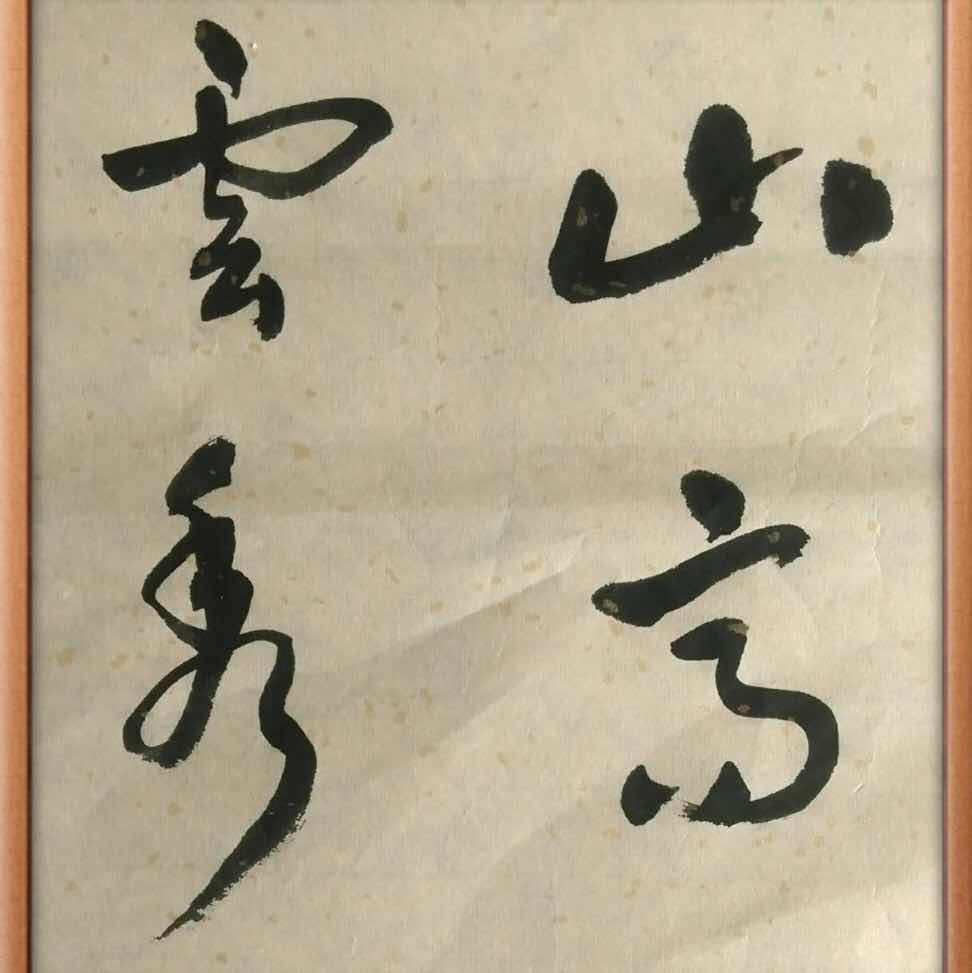 山高
雲秀